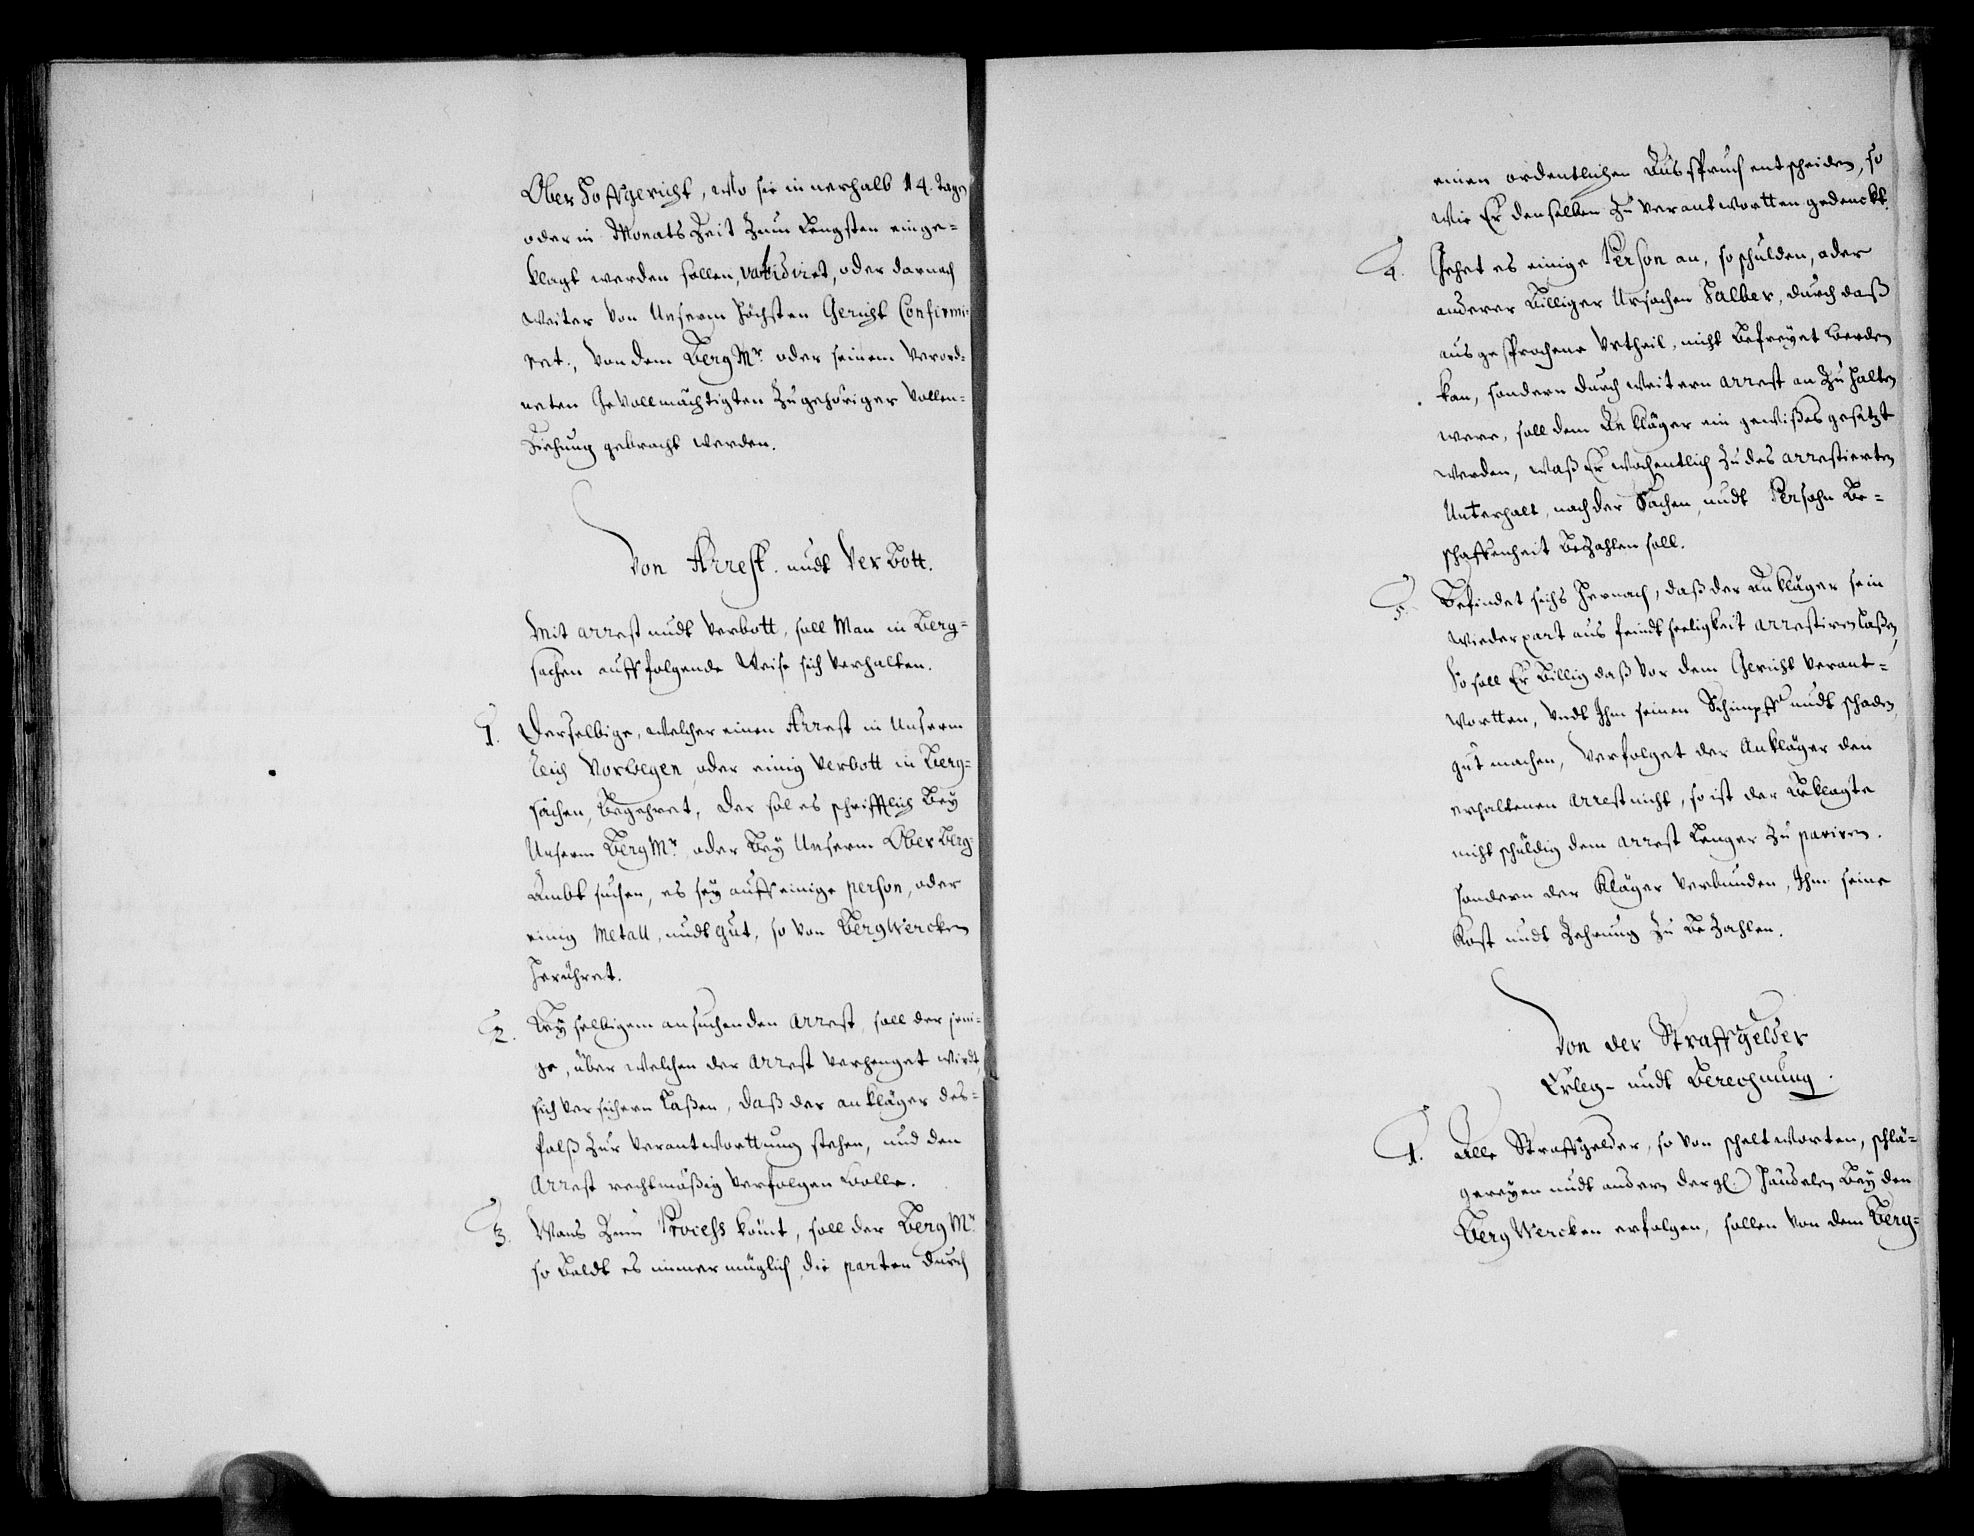 Ober Hoffgericht, wo sie innerhalb 14. Tagen
oder in Monats Zeit Zum Lengsten einge-
klagt werden sollen, ratificiret, oder darnach
weiter von Unserm Höchsten Gericht Confirmi-
ret., von dem BergMr. oder seinem Verord-
neten Gevollmächtigten Zugehöriger Vollen-
Ziehung gebracht werden.
Von Arrest. undt Verbott.
Mit arrest undt Verbott, soll Man in Berg-
sachen auff folgende Weise sich Verhalten.
1. Derselbige, welcher einen Arrest in Unserm
Reich Norwegen, oder einig Verbott in Berg-
sachen, Begehret, der sol es schrifftlich Bey
Unserm BergMr. oder Bey Unserm Ober Berg-
Ambt suchen, es sey auff einige person, oder
einig Metall, undt gut, so von BergWercken
Herrühret.
2. Bey selbigem ansuchenden Arrest, soll der jeni-
ge, über welchen der Arrest Verhenget wirdt,
sich versichern Laßen, daß der ankläger des-
falß Zur Verantworttung stehen, und den
Arrest rechtmäßig Verfolgen wolle.
3. Wans Zum Process komt, soll der BergMr.
so Baldt es immer müglich, die parten durch
einen ordentlichen Ausspruch entscheiden, so
wie Er denselben Zu verantwortten gedenckt.
4. Gehet es einige Person an, so schulden, oder
anderer Billiger Ursachen Halber, durch daß
ausgesprochene Urtheil, nicht Befreyet werden
kan, sondern durch weitern arrest an Zu halten
were, soll dem Ankläger ein gewißes gesetzt
werden, waß Er wochentlich Zu des arrestierten
Unterhalt, nach der Sachen, undt Persohn Be-
schaffenheit BeZahlen soll.
5. Befindet sichs Hernach, daß der Ankläger sein
Wiederpart aus feindtseeligkeit arrestiren laßen,
So soll Er Billig daß vor dem Gericht Verant-
wortten, Undt Ihm seinen Schimpff undt schaden,
gut machen, Verfolget der Ankläger den
erhaltenen Arrest nicht, so ist der Beklagte
nicht schuldig dem Arrest Lenger Zu pariren.
sondern der Kläger Verbunden, Ihm seine
Kost undt Zehrung Zu BeZahlen.
Von der Straffgelder
Erleg- undt Berechnung.
1. Alle Straffgelder, so von scheltworten, schlä-
gereyen undt andern dergl. Händelen Bey den
BergWercken erfolgen, sollen von dem Berg-